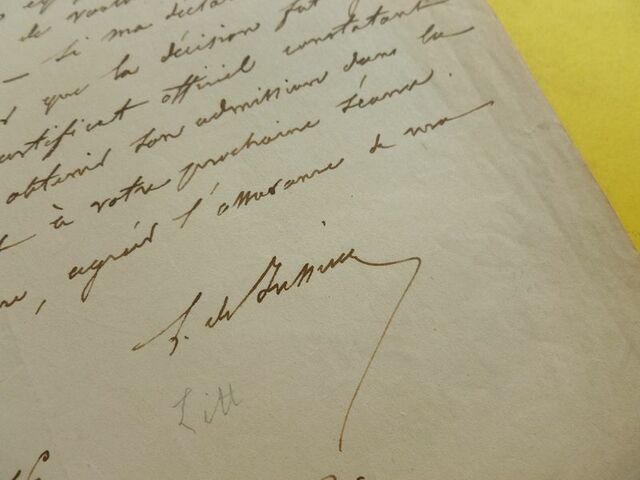 de
— Si ma
que la décision fut
certificat officiel constatant
obtenir son admission dans la
à votre prochaine séance.
agréer l'assurance de ma
de Jussieu
Litt